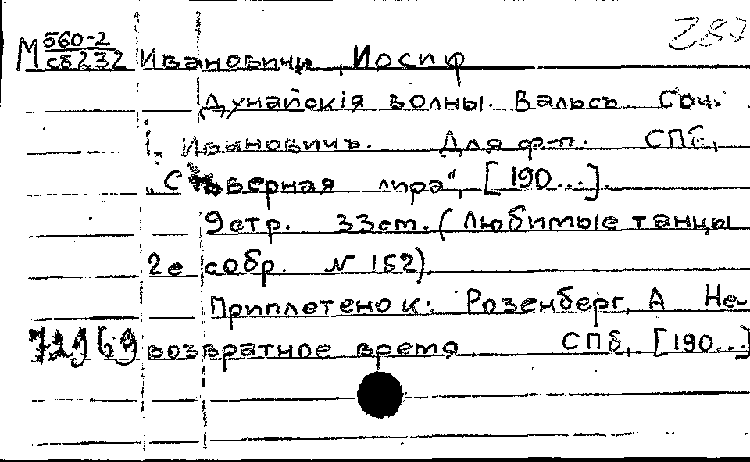 287
М 560-2 Ивановичи, Иосиф
сб 232
Дунайскія волны. Вальсъ. Соч.
І. Ивановичъ. Для ф-п. СПб,
„Сѣверная лира", [190...].
9стр. 33см. (Любимые танцы
2е собр. № 152).
Приплетено к: Розенберг, А Не-
возвратное время СПб, [190...]